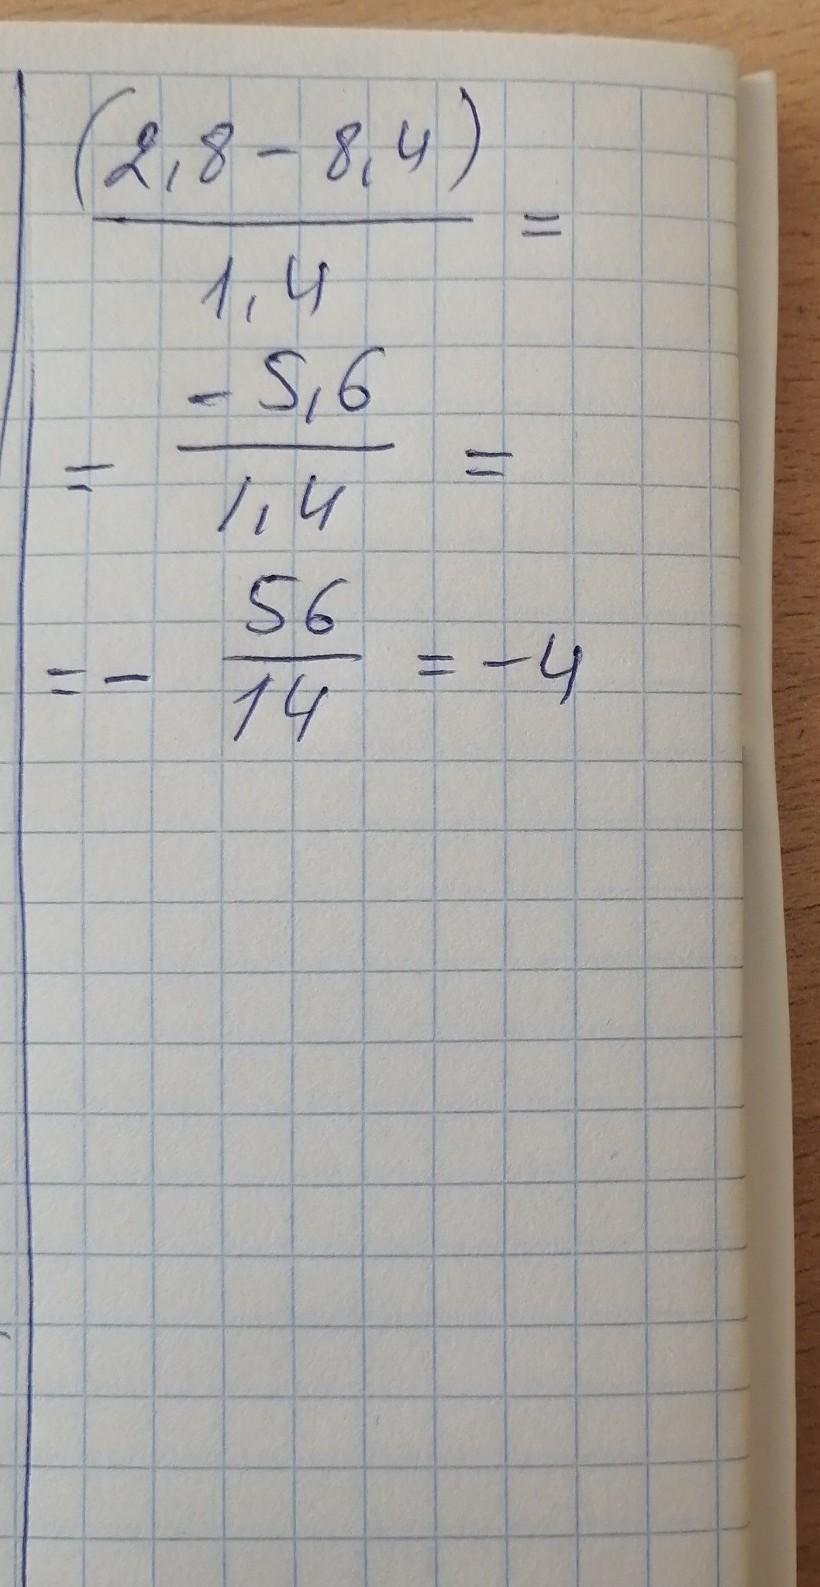 (2,8 - 8,4)
1,4
=
= - 5,6
1,4
=
= - 56
14
= -4